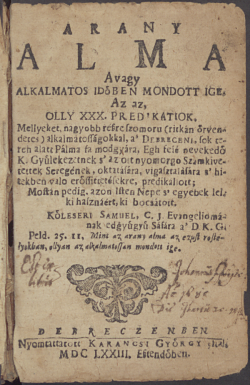 ARANY
ALMA
Avagy
ALKALMATOS IDŐBEN MONDOTT IGE,
Az az,
OLLY XXX. PRED'KÁTIOK,
Mellyeket, nagyobb részre szomorú (ritkán örven-
detes) alkalmatosságokkal, a' DEBRECENI, sok te-
reh alatt Pálma fa módgyára, Egh felé nevekedő
K. Gyülekezetnek s' az ott nyomorgo Számkive-
tettek Seregének, oktatására, vigasztalására s' hi-
tekben való erősittetésekre, prédikállott;
Mostan pedig, azon Isten Népe s' egyebek lel-
ki hasznáért, ki bocsátott.
KÖLESERI SAMUEL, C, J. Evangeliomá-
nak edgyügyü Sáfára a' D. K. G.
Péld. 25. 11. Mint az arany alma az ezüst rosté-
lyokban, ollyan az alkalmatossan mondott ige.
DEBRECZENBEN
Nyomtattatott KARANCSI GYÖRGY által,
MDC LXXIII. Esztendőben.